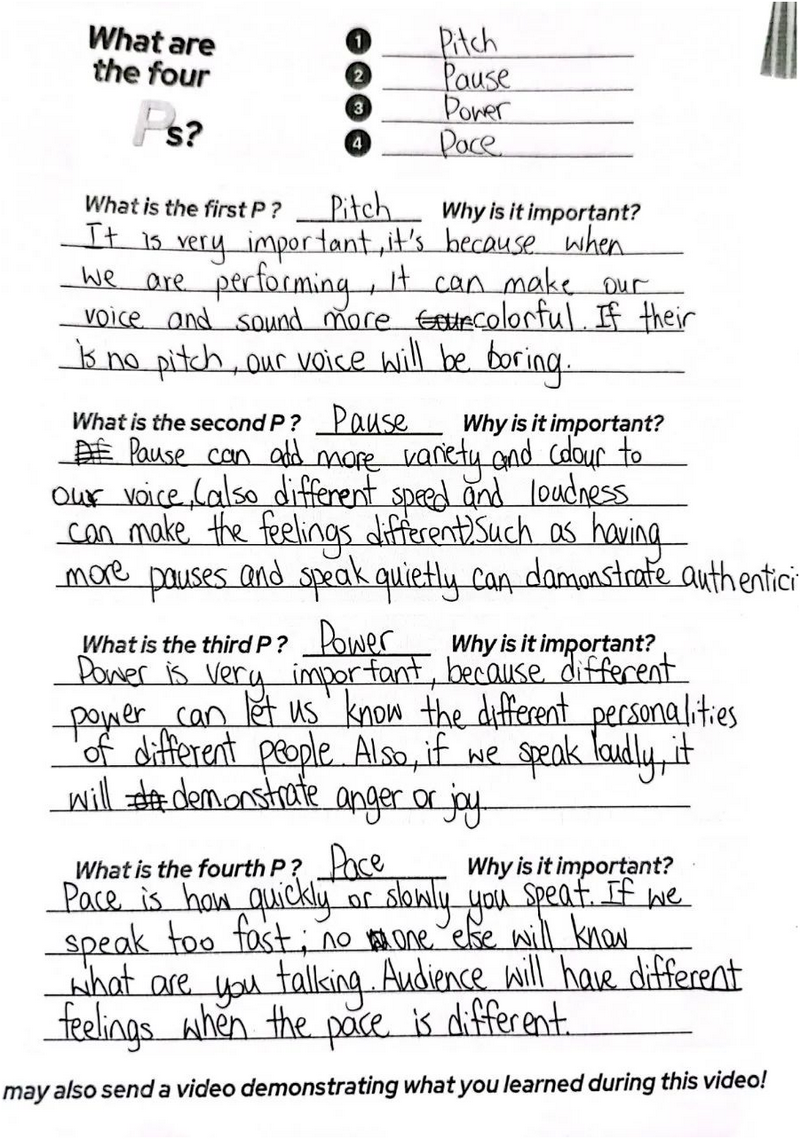 What are
the four
Ps?
1 Pitch
2 Pause
3 Power
4 Pace
What is the first P? Pitch Why is it important?
It is very important, it's because when
we are performing, it can make our
voice and sound more colorful. If their
is no pitch, our voice will be boring.
What is the second P? Pause Why is it important?
Pause can add more variety and colour to
our voice, (also different speed and loudness
can make the feelings different). Such as having
more pauses and speak quietly can damonstrate authentici
What is the third P? Power Why is it important?
Power is very important, because different
power can let us know the different personalities
of different people. Also, if we speak loudly, it
will demonstrate anger or joy.
What is the fourth P? Pace Why is it important?
Pace is how quickly or slowly you speat. If we
speak too fast; no one else will know
what are you talking. Audience will have different
feelings when the pace is different.
may also send a video demonstrating what you learned during this video!